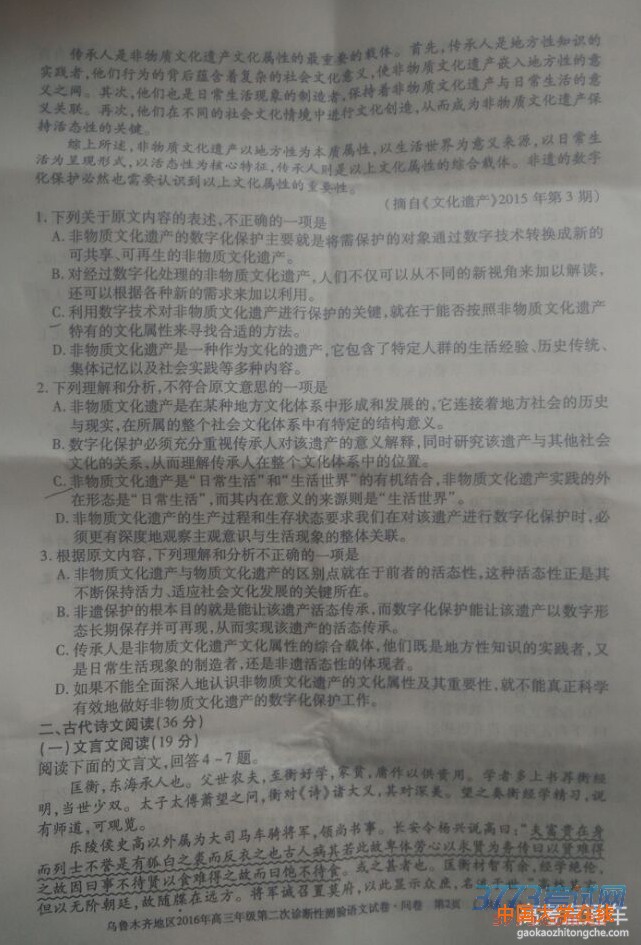 传承人是非物质文化遗产文化属性的最重要的载体。首先,传承人是地方性知识的
实践者,他们行为的背后蕴含着复杂的社会文化意义,使非物质文化遗产嵌入地方性的意
义之网。其次,他们也是日常生活现象的制造者,保持着非物质文化遗产与日常生活的意
义关联。再次,他们在不同的社会文化情境中进行文化创造,从而成为非物质文化遗产保
持活态性的关键。
综上所述,非物质文化遗产以地方性为本质属性,以生活世界为意义来源,以日常生
活为呈现形式,以活态性为核心特征,传承人则是以上文化属性的综合载体。非遗的数字
化保护必然也需要认识到以上文化属性的重要性。
(摘自《文化遗产》2015年第3期)
1. 下列关于原文内容的表述,不正确的一项是
A. 非物质文化遗产的数字化保护主要就是将需保护的对象通过数字技术转换成新的
可共享、可再生的非物质文化遗产。
B. 对经过数字化处理的非物质文化遗产,人们不仅可以从不同的新视角来加以解读,
还可以根据各种新的需求来加以利用。
C. 利用数字技术对非物质文化遗产进行保护的关键,就在于能否按照非物质文化遗产
特有的文化属性来寻找合适的方法。
D. 非物质文化遗产是一种作为文化的遗产,它包含了特定人群的生活经验、历史传统、
集体记忆以及社会实践等多种内容。
2. 下列理解和分析,不符合原文意思的一项是
A. 非物质文化遗产是在某种地方文化体系中形成和发展的,它连接着地方社会的历史
与现实,在所属的整个社会文化体系中有特定的结构意义。
B. 数字化保护必须充分重视传承人对该遗产的意义解释,同时研究该遗产与其他社会
文化的关系,从而理解传承人在整个文化体系中的位置。
C. 非物质文化遗产是“日常生活”和“生活世界”的有机结合,非物质文化遗产实践的外
在形态是“日常生活”,而其内在意义的来源则是“生活世界”。
D. 非物质文化遗产的生产过程和生存状态要求我们在对该遗产进行数字化保护时,必
须更有深度地观察主观意识与生活现象的整体关联。
3. 根据原文内容,下列理解和分析不正确的一项是
A. 非物质文化遗产与物质文化遗产的区别点就在于前者的活态性,这种活态性正是其
不断保持活力、适应社会文化发展的关键所在。
B. 非遗保护的根本目的就是能让该遗产活态传承,而数字化保护能让该遗产以数字形
态长期保存并可再现,从而实现该遗产的活态传承。
C. 传承人是非物质文化遗产文化属性的综合载体,他们既是地方性知识的实践者,又
是日常生活现象的制造者,还是非遗活态性的体现者。
D. 如果不能全面深入地认识非物质文化遗产的文化属性及其重要性,就不能真正科学
有效地做好非物质文化遗产的数字化保护工作。
二、古代诗文阅读(36分)
(一)文言文阅读(19分)
阅读下面的文言文,回答4-7题。
匡衡,东海承人也。父世农夫,至衡好学,家贫,庸作以供资用。学者多上书荐衡经
明,当世少双。太子太傅萧望之问,衡对《诗》诸大义,其对深美。望之奏衡经学精习,说
有师道,可观览。
乐陵侯史高以外属为大司马车骑将军,领尚书事。长安令杨兴说高曰:“夫富贵在身
而列士不誉是有狐白之裘而反衣之也古人病其若此故卑体劳心以求贤为务传曰以贤难得
之故因曰事不待贤以食难得之故而曰饱不待食。或之甚者也。匡衡材智有余,经学绝伦,
但以无阶朝廷,故随牒在远方。将军诚召置莫府,以此显示众庶,名
乌鲁木齐地区2016年高三年级第二次诊断性测验语文试卷·问卷 第2页
3773考试网
中高大学在线
gaokaozhitongche.com